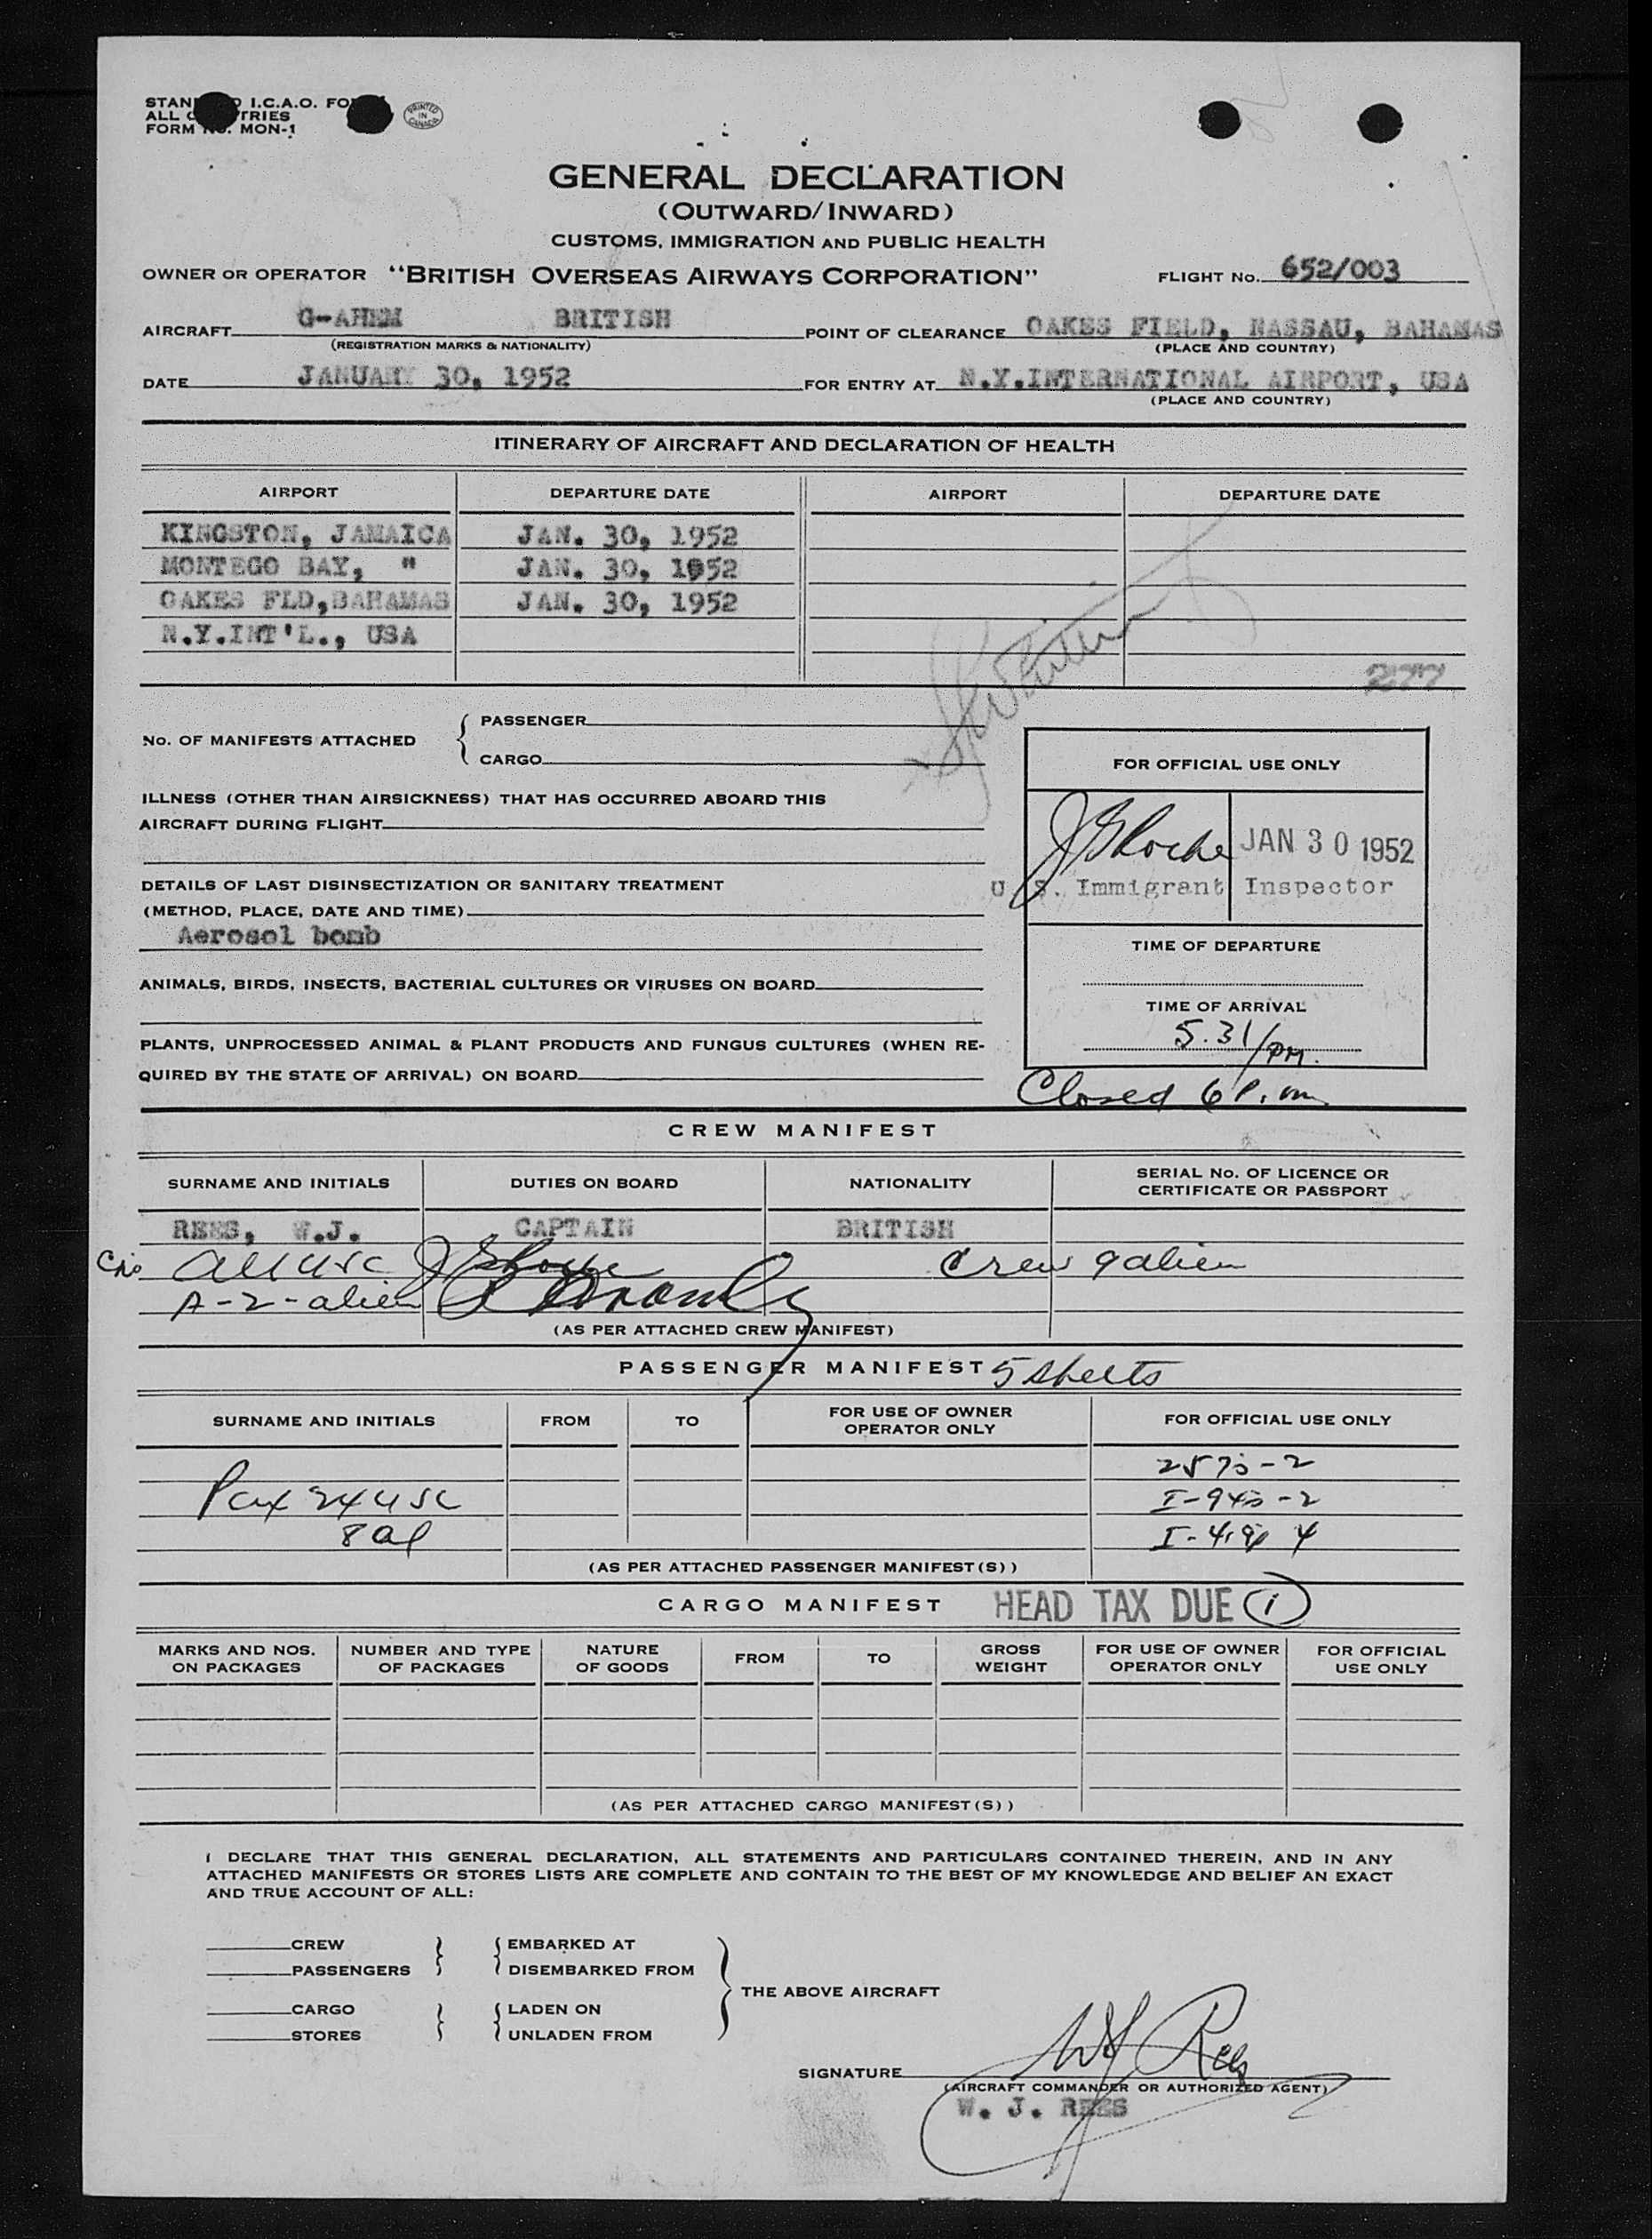 STANDARD I.C.A.O. FORM
ALL COUNTRIES
FORM No. MON-1
PRINTED IN CANADA
GENERAL DECLARATION
(OUTWARD/INWARD)
CUSTOMS, IMMIGRATION AND PUBLIC HEALTH
OWNER OR OPERATOR "BRITISH OVERSEAS AIRWAYS CORPORATION" FLIGHT No. 652/003
AIRCRAFT G-AHEM BRITISH POINT OF CLEARANCE OAKES FIELD, NASSAU, BAHAMAS
(REGISTRATION MARKS & NATIONALITY) (PLACE AND COUNTRY)
DATE JANUARY 30, 1952 FOR ENTRY AT N.Y.INTERNATIONAL AIRPORT, USA
(PLACE AND COUNTRY)
ITINERARY OF AIRCRAFT AND DECLARATION OF HEALTH
AIRPORT DEPARTURE DATE AIRPORT DEPARTURE DATE
KINGSTON, JAMAICA JAN. 30, 1952
MONTEGO BAY, " JAN. 30, 1952
OAKES FLD,BAHAMAS JAN. 30, 1952
N.Y.INT'L., USA
277
No. OF MANIFESTS ATTACHED { PASSENGER
CARGO
FOR OFFICIAL USE ONLY
ILLNESS (OTHER THAN AIRSICKNESS) THAT HAS OCCURRED ABOARD THIS
AIRCRAFT DURING FLIGHT
J G Roche JAN 30 1952
U.S. Immigrant Inspector
DETAILS OF LAST DISINSECTIZATION OR SANITARY TREATMENT
(METHOD, PLACE, DATE AND TIME)
Aerosol bomb
TIME OF DEPARTURE
ANIMALS, BIRDS, INSECTS, BACTERIAL CULTURES OR VIRUSES ON BOARD
TIME OF ARRIVAL
5.31/pm.
PLANTS, UNPROCESSED ANIMAL & PLANT PRODUCTS AND FUNGUS CULTURES (WHEN RE-
QUIRED BY THE STATE OF ARRIVAL) ON BOARD
Closed 6 P.m.
CREW MANIFEST
SURNAME AND INITIALS DUTIES ON BOARD NATIONALITY SERIAL No. OF LICENCE OR
CERTIFICATE OR PASSPORT
REES, W.J. CAPTAIN BRITISH
All USC J G Roche Crew 9 alien
A-2-alien
(AS PER ATTACHED CREW MANIFEST)
PASSENGER MANIFEST 5 sheets
SURNAME AND INITIALS FROM TO FOR USE OF OWNER
OPERATOR ONLY FOR OFFICIAL USE ONLY
257s-2
Pax 24 USC I-94s-2
8 al I-4 4
(AS PER ATTACHED PASSENGER MANIFEST(S))
CARGO MANIFEST HEAD TAX DUE 1
MARKS AND NOS.
ON PACKAGES NUMBER AND TYPE
OF PACKAGES NATURE
OF GOODS FROM TO GROSS
WEIGHT FOR USE OF OWNER
OPERATOR ONLY FOR OFFICIAL
USE ONLY
(AS PER ATTACHED CARGO MANIFEST(S))
I DECLARE THAT THIS GENERAL DECLARATION, ALL STATEMENTS AND PARTICULARS CONTAINED THEREIN, AND IN ANY
ATTACHED MANIFESTS OR STORES LISTS ARE COMPLETE AND CONTAIN TO THE BEST OF MY KNOWLEDGE AND BELIEF AN EXACT
AND TRUE ACCOUNT OF ALL:
CREW EMBARKED AT
PASSENGERS DISEMBARKED FROM
THE ABOVE AIRCRAFT
CARGO LADEN ON
STORES UNLADEN FROM
SIGNATURE WJ Rees
(AIRCRAFT COMMANDER OR AUTHORIZED AGENT)
W. J. REES